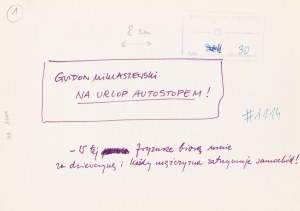 1
8 cm
30
GWIDON MIKLASZEWSKI
NA URLOP AUTOSTOPEM!
#1114
- W tej fryzurze biorą mnie
za dziewczynę i każdy mężczyzna zatrzymuje samochód!